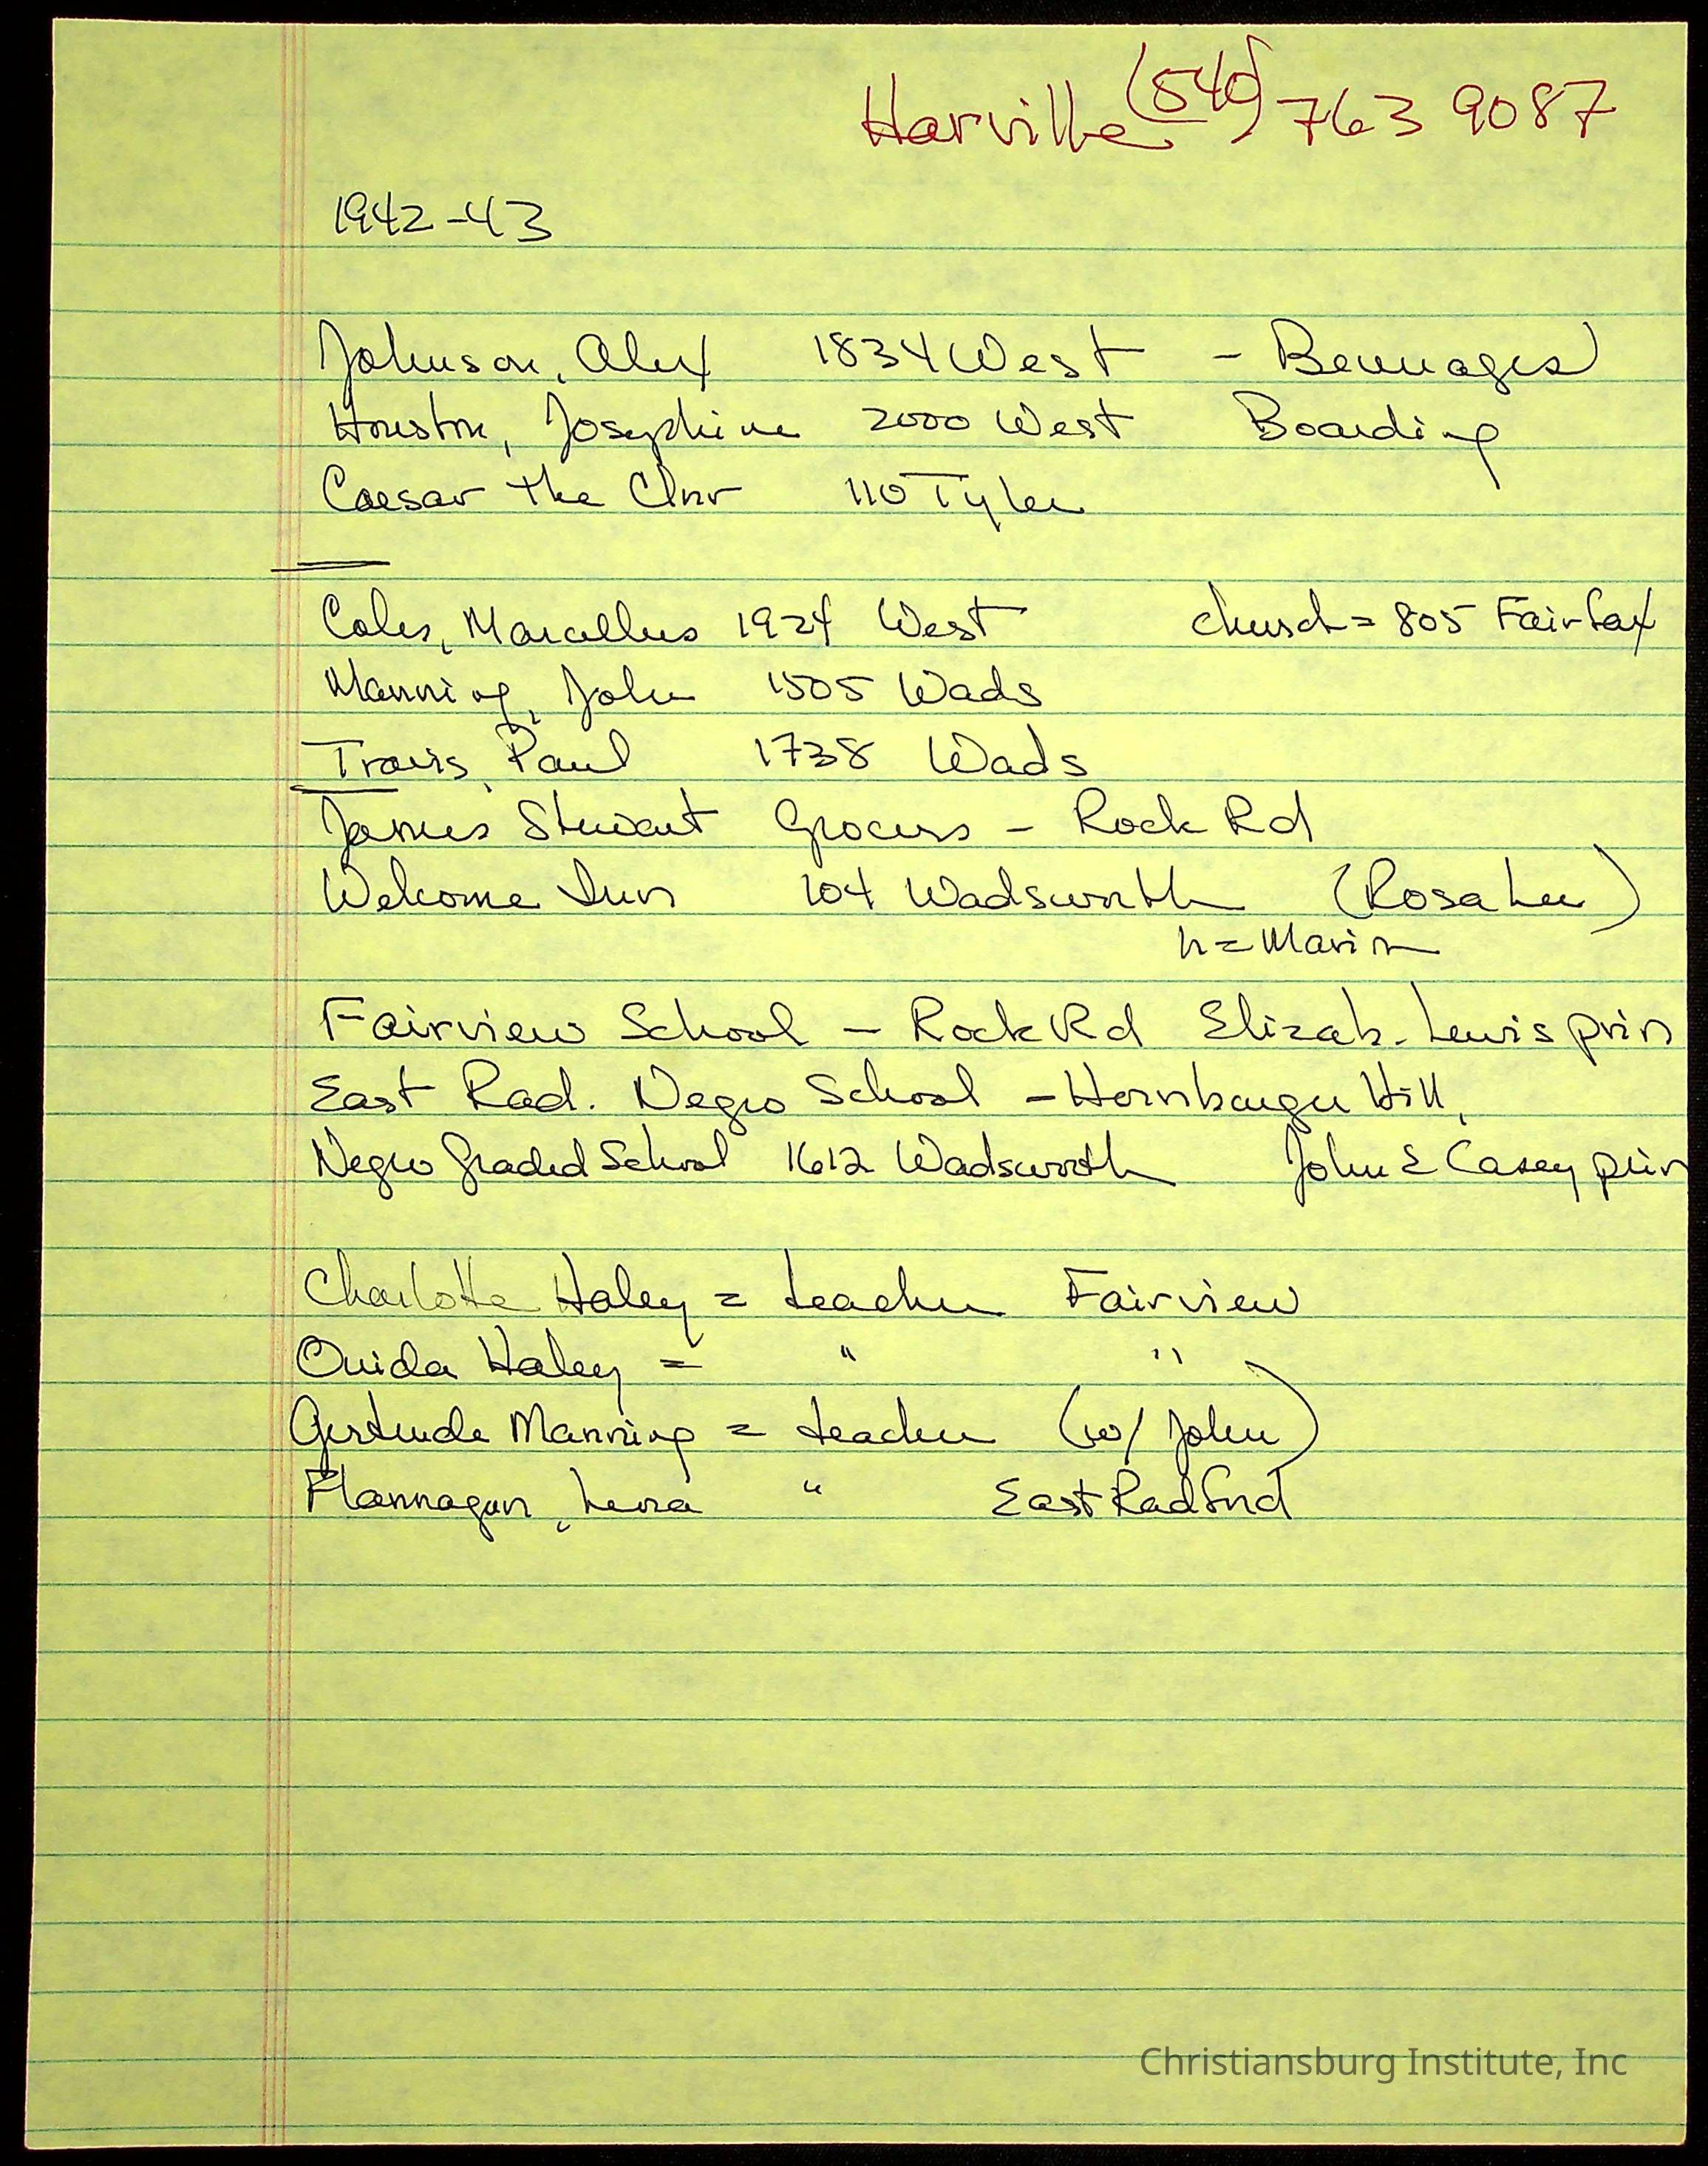 Harville (540) 763 9087
1942-43
Johnson, Alex 1834 West - Beverages
Houston, Josephine 2000 West Boarding
Caesar the Clnr 110 Tyler
Coles, Marcellus 1924 West church = 805 Fairfax
Manning, John 1505 Wads
Travis, Paul 1738 Wads
James Stewart Grocers - Rock Rd
Welcome Inn 104 Wadsworth (Rosa Lee)
h = Marion
Fairview School - Rock Rd Elizab. Lewis prin
East Rad. Negro School - Hornbarger Hill,
Negro Graded School 1612 Wadsworth John E Casey prin
Charlotte Haley = teacher Fairview
Ouida Haley = " "
Gertrude Manning = teacher (w/ John)
Flannagan, " East Radford
Christiansburg Institute, Inc